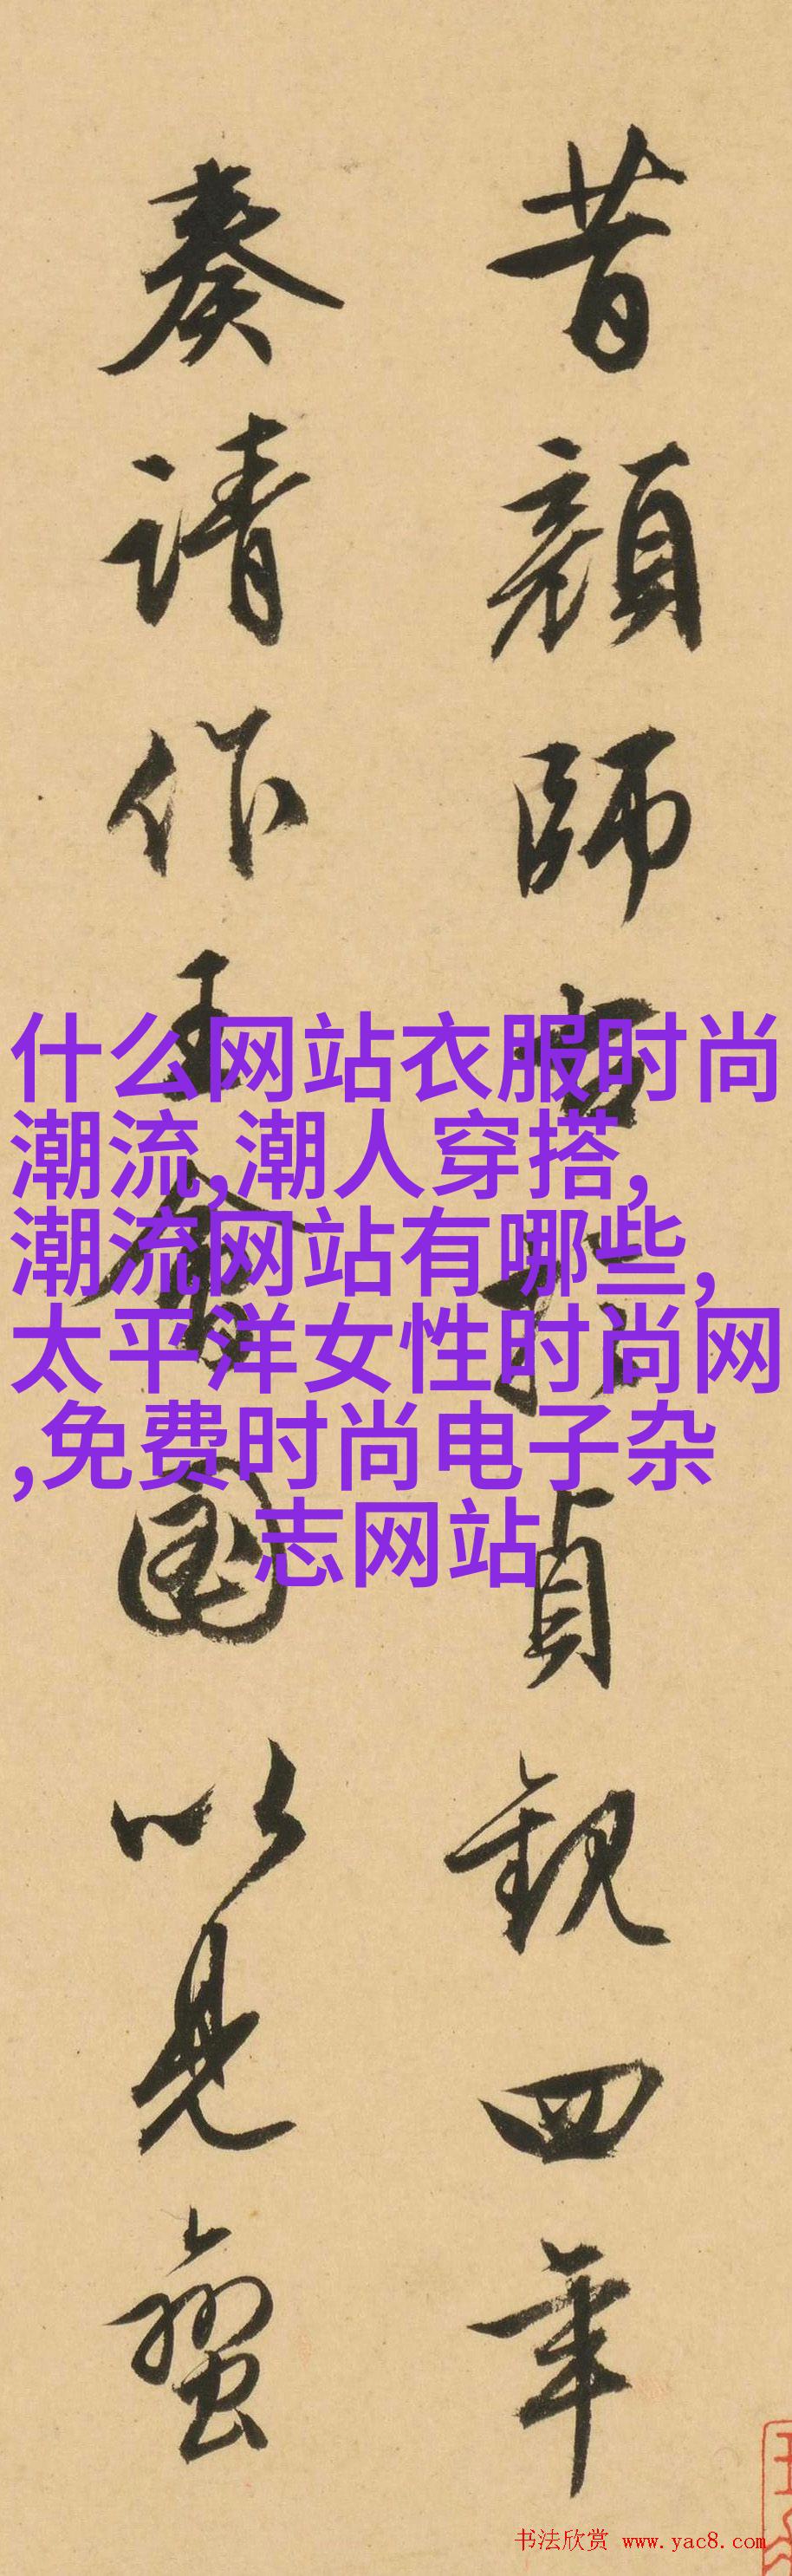 昔顏師古於貞觀四年
奏請作王會圖以見蠻
什么网站衣服时尚
潮流,潮人穿搭,
潮流网站有哪些,
太平洋女性时尚网
,免费时尚电子杂
志网站
书法欣赏 www.yac8.com